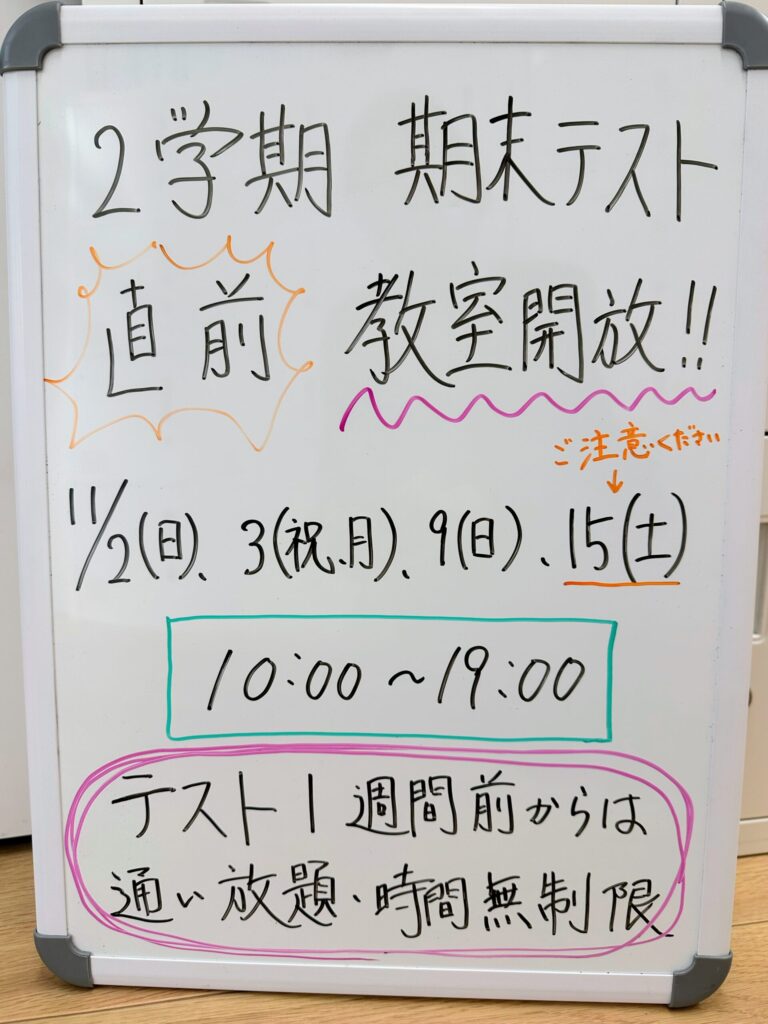 2学期 期末テスト
直前 教室開放!!
ご注意ください
↓
11/2(日)、3(祝、月)、9(日)、15(土)
10:00～19:00
テスト1週間前からは
通い放題、時間無制限